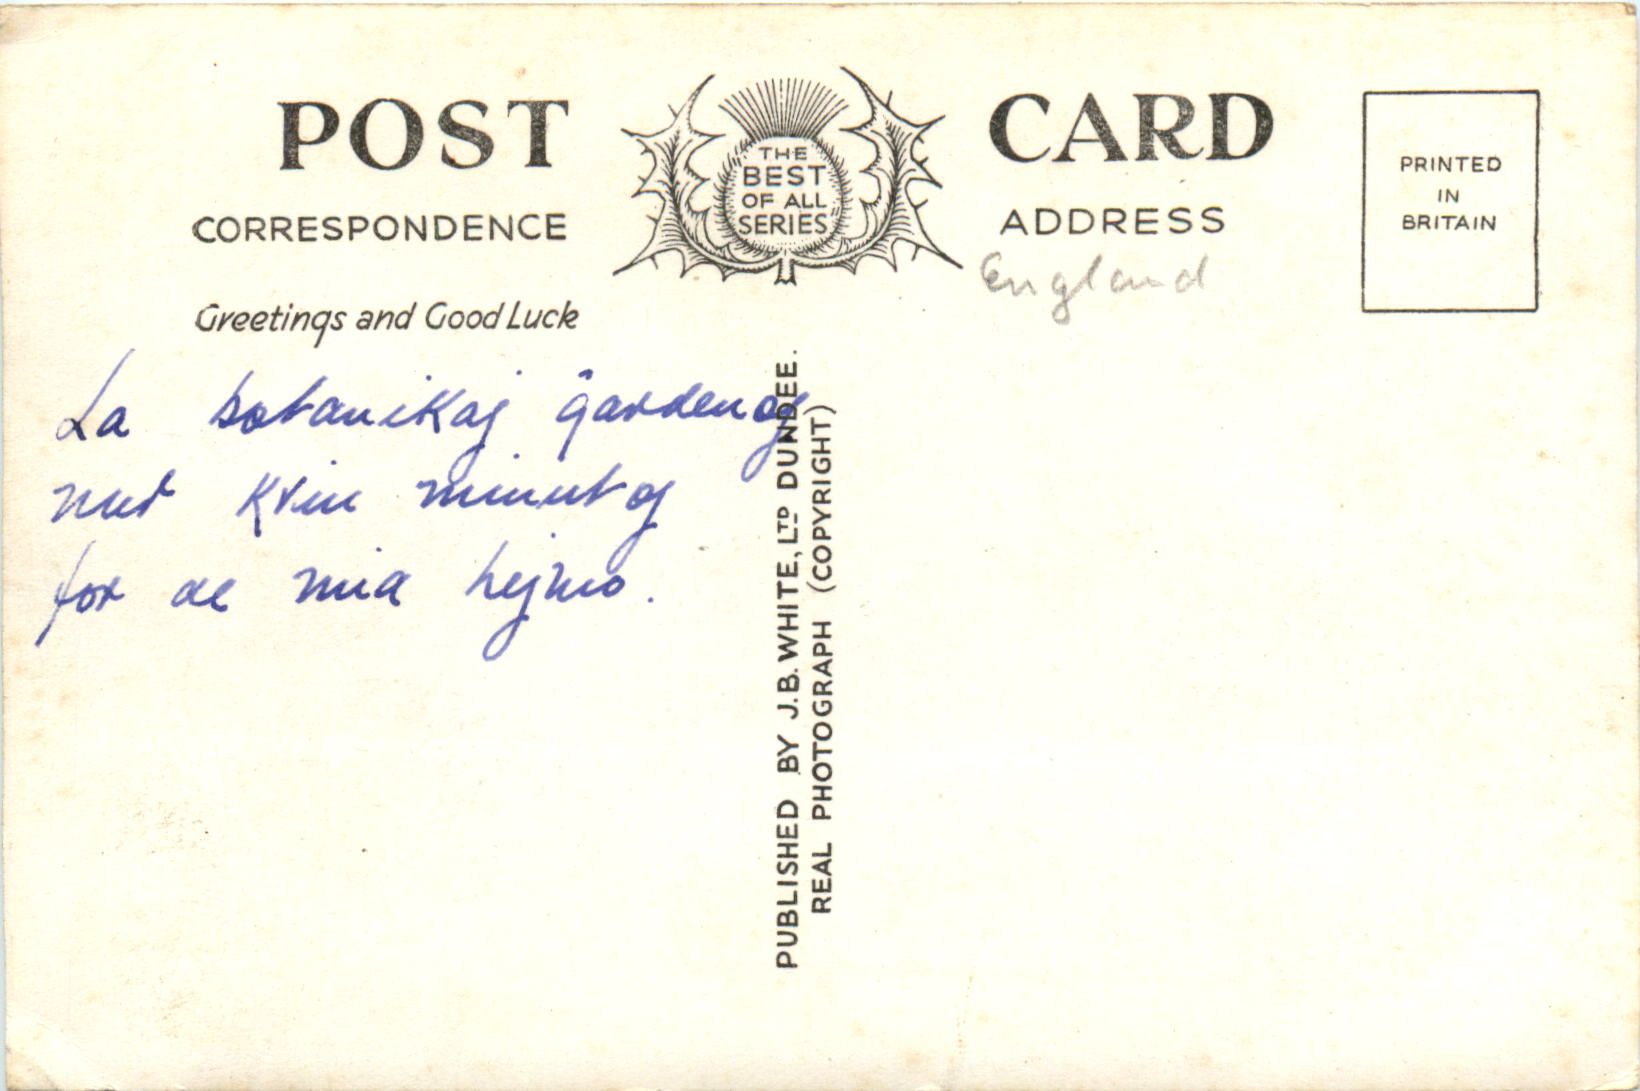 POST CARD
THE
BEST
OF ALL
SERIES
CORRESPONDENCE
ADDRESS
PRINTED
IN
BRITAIN
England
Greetings and Good Luck
La botanikaj ĝardenoj
nur kvin minutoj
for de mia hejmo.
PUBLISHED BY J.B. WHITE, LTD DUNDEE.
REAL PHOTOGRAPH (COPYRIGHT)